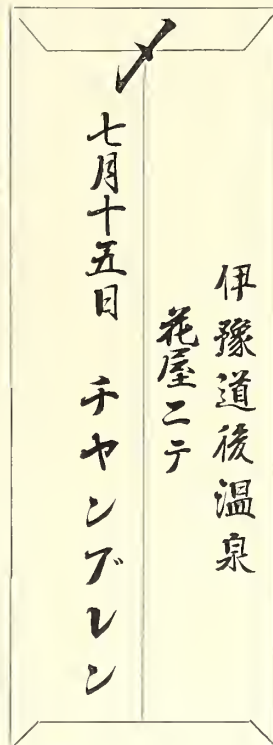 〆
伊豫道後溫泉
花屋ニテ
七月十五日　チヤンブレン